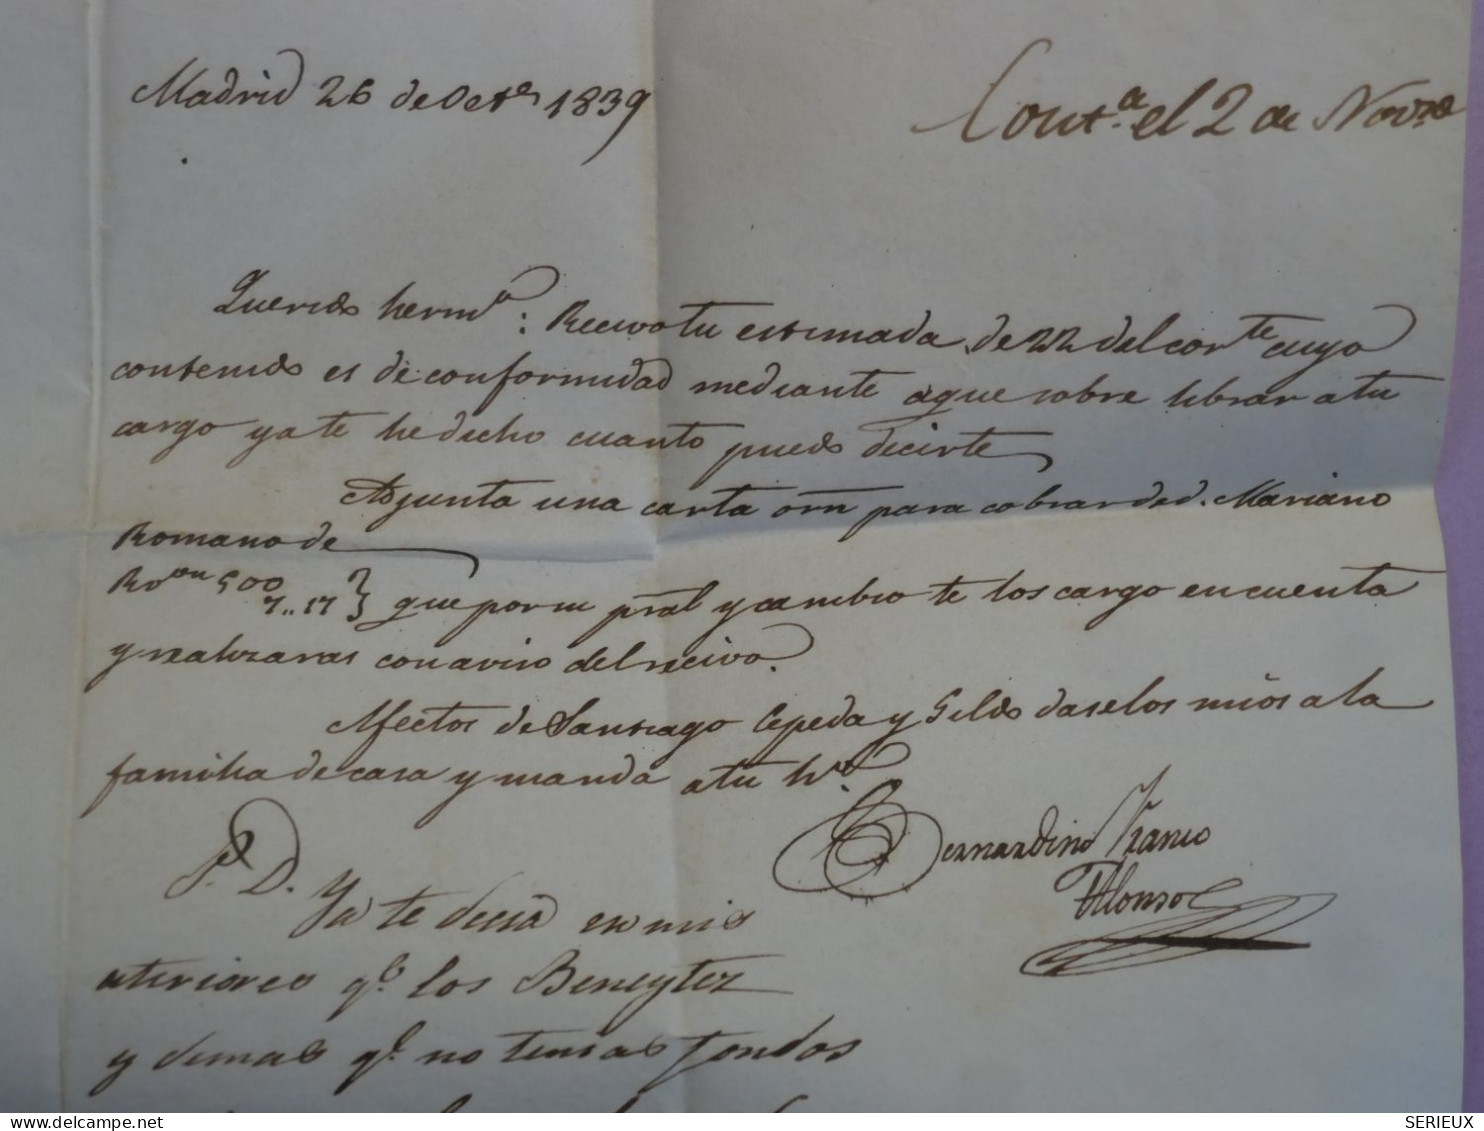 Madrid 26 de Octe 1839
Conta. el 2 de Novre
Querido hermo: Recivo tu estimada de 22 del corte cuyo
contenido es de conformidad mediante a que sobre librar a tu
cargo ya te he dicho cuanto puedo decirte
Adjunta una carta orn para cobrar de d. Mariano
Romano de
Rvon 500
7..17 } que por su pral y cambio te los cargo en cuenta
y realizaras con aviso del recivo.
Afectos de Santiago Cepeda y Gildo daselos mios a la
familia de casa y manda a tu ho.
Bernardino Franco
Alonso
P. D. Ya te decia en mis
anteriores qe los Beneytez
y demas qe no tenias fondos
SERIEUX